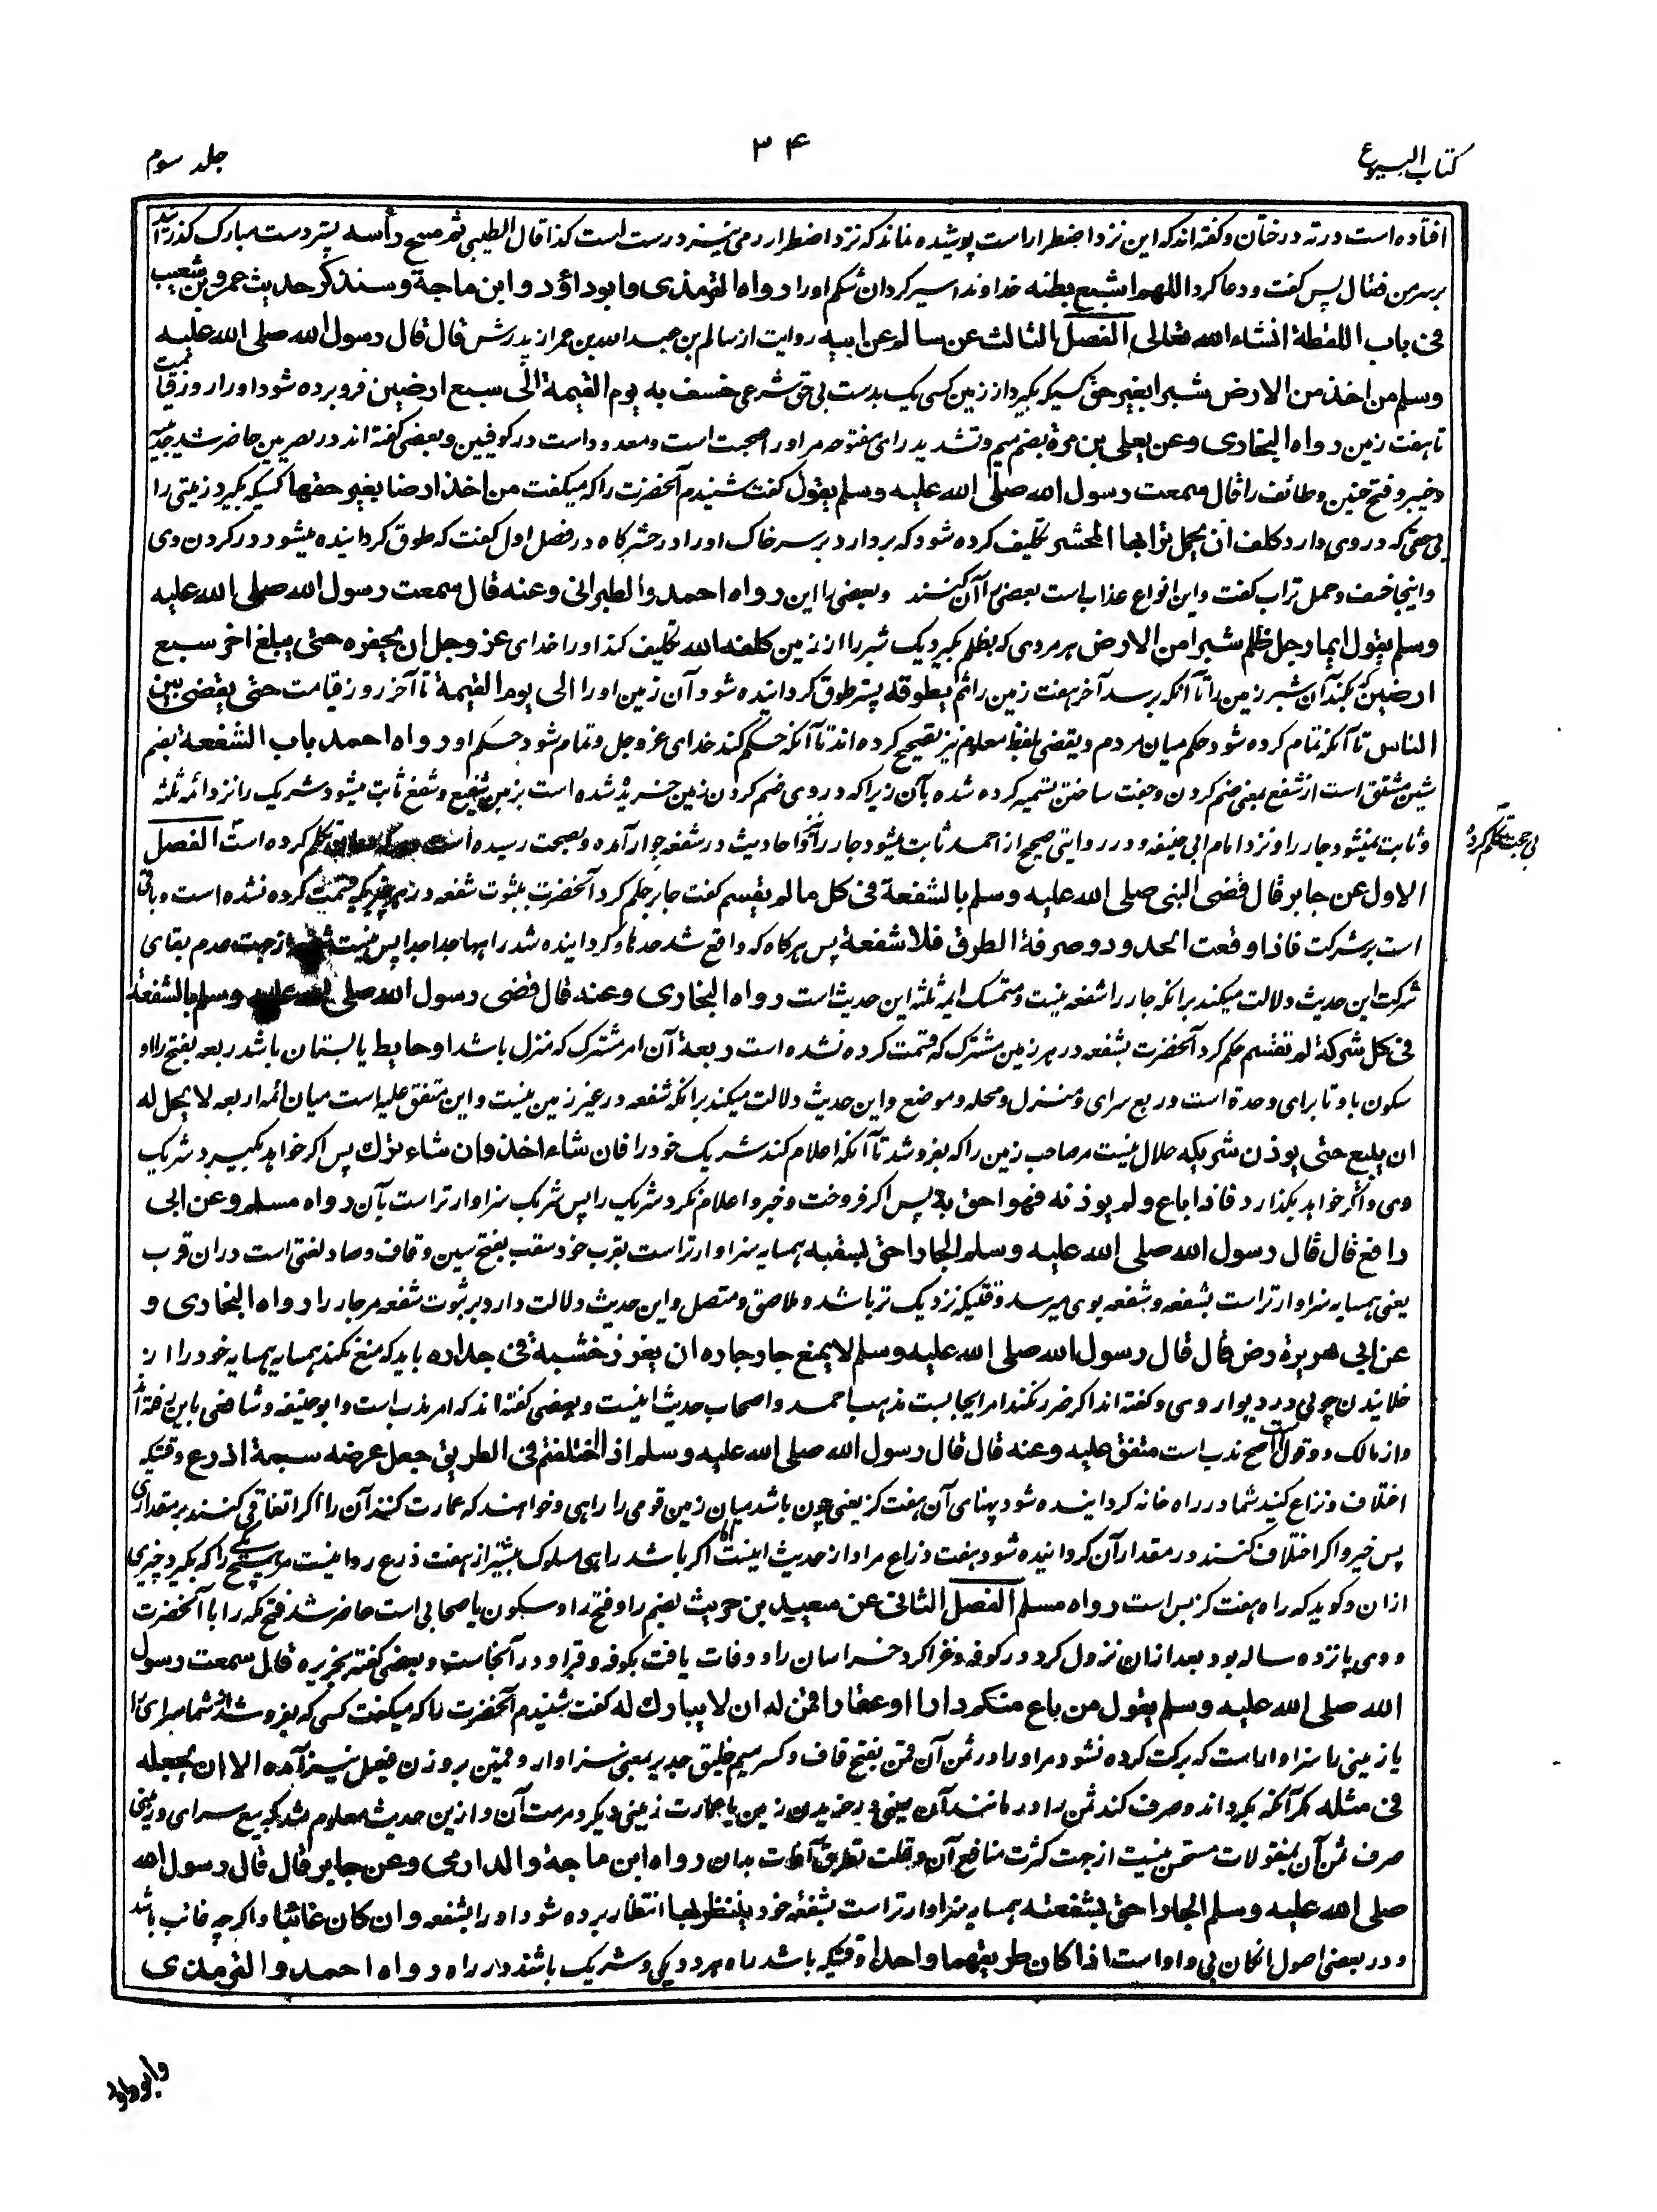 کتاب البیوع
۳۴
جلد سوم
افتاده است در ته درختان و گفته اند که این نزد اضطرار است پوشیده نماند که نزد اضطرار رمی نیز درست است کذا قال الطیبی ثم مسح رأسه پستر دست مبارک گذرانید
بر سر من فقال پس گفت و دعا کرد اللهم اشبع بطنه خداوندا سیر گردان شکم او را رواه الترمذی و ابوداؤد و ابن ماجة و سنذکر حدیث عمرو بن شعیب
فی باب اللقطة انشاء الله تعالی الفصل الثالث عن سالم عن ابیه روایت از سالم بن عبد الله بن عمر از پدرش قال قال رسول الله صلی الله علیه
وسلم من اخذ من الارض شبرا بغیر حق کسیکه بگیرد از زمین کسی یک بدست بی حق شرعی خسف به یوم القیمة الی سبع ارضین فرو برده شود او را روز قیامت
تا هفت زمین رواه البخاری وعن یعلی بن مرة بضم میم و تشدید رای مفتوحه مر او را صحبت است و معدود است در کوفیین و بعضی گفته اند در بصریین حاضر شد حدیبیه
و خیبر و فتح حنین و طائف را قال سمعت رسول الله صلی الله علیه وسلم یقول گفت شنیدم آنحضرت را که میگفت من اخذ ارضا بغیر حقها کسیکه بگیرد زمینی را
بی حقی که در وی دارد کلف ان یحمل ترابها المحشر تکلیف کرده شود که بردارد بر سر خاک او را در حشرگاه در فصل اول گفت که طوق گردانیده میشود در گردن وی
و اینجا خسف و حمل تراب گفت و این انواع عذاب است بعضی را آن کنند و بعضی را این رواه احمد والطبرانی وعنه قال سمعت رسول الله صلی الله علیه
وسلم یقول ایما رجل ظلم شبرا من الارض هر مردی که بظلم بگیرد یک شبر را از زمین کلفه الله تکلیف کند او را خدای عز وجل ان یحفره حتی یبلغ اخر سبع
ارضین که بکند آن شبر زمین را تا آنکه برسد آخر هفت زمین را ثم یطوقه پستر طوق گردانیده شود آن زمین او را الی یوم القیمة تا آخر روز قیامت حتی یقضی بین
الناس تا آنکه تمام کرده شود حکم میان مردم و یقضی بلفظ معلوم نیز تصحیح کرده اند تا آنکه حکم کند خدای عز وجل و تمام شود حکم او رواه احمد باب الشفعة بضم
شین مشتق است از شفع بمعنی ضم کردن و جفت ساختن تسمیه کرده شده بآن زیرا که در وی ضم کردن زمین خریده شده است بزمین شفیع و شفع ثابت میشود شریک را نزد ائمه ثلثه
و ثابت نمیشود جار را و نزد امام ابی حنیفه و در روایتی صحیح از احمد ثابت میشود جار را نیز و احادیث در شفعه جوار آمده و بصحت رسیده است تکلم کرده است الفصل
بی حجت تکلم کرد
الاول عن جابر قال قضی النبی صلی الله علیه وسلم بالشفعة فی کل ما لم یقسم گفت جابر حکم کرد آنحضرت بثبوت شفعه در هر چیزیکه قسمت کرده نشده است و باقی
است بر شرکت فاذا وقعت الحدود وصرفة الطرق فلا شفعة پس هرگاه که واقع شد حدها و گردانیده شد راهها جدا جدا پس نیست شفعه از جهت عدم بقای
شرکت این حدیث دلالت میکند برانکه جار را شفعه نیست و متمسک ایمه ثلثه این حدیث است رواه البخاری وعنه قال قضی رسول الله صلی الله علیه وسلم بالشفعة
فی کل شرکة لم تقسم حکم کرد آنحضرت بشفعه در هر زمین مشترک که قسمت کرده نشده است ربعة آن امر مشترک که منزل باشد او حایط یا بستان باشد ربعه بفتح را و
سکون با و تا برای وحدة است و ربع سرای و منزل و محله و موضع و این حدیث دلالت میکند برانکه شفعه در غیر زمین نیست و این متفق علیه است میان ائمه اربعه لا یحل له
ان یبیع حتی یوذن شریکه حلال نیست مر صاحب زمین را که بفروشد تا آنکه اعلام کند شریک خود را فان شاء اخذ وان شاء ترک پس اگر خواهد بگیرد شریک
وی و اگر خواهد بگذارد فاذا باع ولم یوذنه فهو احق به پس اگر فروخت و خبر و اعلام نکرد شریک را پس شریک سزاوارتر است بآن رواه مسلم وعن ابی
رافع قال قال رسول الله صلی الله علیه وسلم الجار احق بسقبه همسایه سزاوارتر است بقرب خود سقب بفتح سین و قاف و صاد لغتی است دران قرب
یعنی همسایه سزاوارتر است بشفعه و شفعه بوی میرسد وقتیکه نزدیک تر باشد و ملاصق و متصل و این حدیث دلالت دارد بر ثبوت شفعه مر جار را رواه البخاری و
عن ابی هریرة رض قال قال رسول الله صلی الله علیه وسلم لا یمنع جار جاره ان یغرز خشبة فی جداره باید که منع نکند همسایه همسایه خود را از
خلانیدن چوبی در دیوار وی و گفته اند اگر ضرر نکند امر ایجابست مذهب احمد و اصحاب حدیث اینست و بعضی گفته اند که امر ندب است و ابو حنیفه و شافعی باین رفته اند
و از مالک دو قول است اصح ندب است متفق علیه وعنه قال قال رسول الله صلی الله علیه وسلم اذا اختلفتم فی الطریق جعل عرضه سبعة اذرع وقتیکه
اختلاف و نزاع کنید شما در راه خانه گردانیده شود پهنای آن هفت گز یعنی چون باشد میان زمین قومی را راهی و خواهند که عمارت کنند آن را اگر اتفاق کنند بر مقداری
پس خیر و اگر اختلاف کنند در مقدار آن گردانیده شود هفت ذراع مراد از حدیث اینست اما اگر باشد راهی مسلوک بیشتر از هفت ذرع روا نیست مر هیچ یکی را که بگیرد چیزی
ازان و گوید که راه هفت گز بس است رواه مسلم الفصل الثانی عن سعید بن حریث بضم را و فتح را و سکون یا صحابی است حاضر شد فتح مکه را با آنحضرت
و وی پانزده ساله بود بعد ازان نزول کرد در کوفه و غزا کرد خراسان را و وفات یافت بکوفه و قبر او در آنجاست و بعضی گفته بجزیره قال سمعت رسول
الله صلی الله علیه وسلم یقول من باع منکم دارا او عقارا قمن له ان لا یبارک له گفت شنیدم آنحضرت را که میگفت کسی که بفروشد از شما سرای را
یا زمینی را سزاوار است که برکت کرده نشود مر او را در ثمن آن قمن بفتح قاف و کسر میم خلیق جدیر بمعنی سزاوار و قمین بر وزن فعیل نیز آمده الا ان یجعله
فی مثله مگر آنکه بگرداند و صرف کند ثمن را در مانند آن یعنی در خریدن زمین یا عمارت زمینی دیگر و مرمت آن و ازین حدیث معلوم شد که بیع سرای و زمین
صرف ثمن آن بمنقولات مستحسن نیست از جهت کثرت منافع آن و قلت تطرق آفت بدان رواه ابن ماجة والدارمی وعن جابر قال قال رسول الله
صلی الله علیه وسلم الجار احق بشفعته همسایه سزاوارتر است بشفعه خود ینتظر بها انتظار برده شود او را بشفعه وان کان غائبا و اگرچه غائب باشد
و در بعضی اصول ان کان بی واو است اذا کان طریقهما واحدا وقتیکه باشد راه هر دو یکی و شریک باشند در راه رواه احمد والترمذی
وابوداود